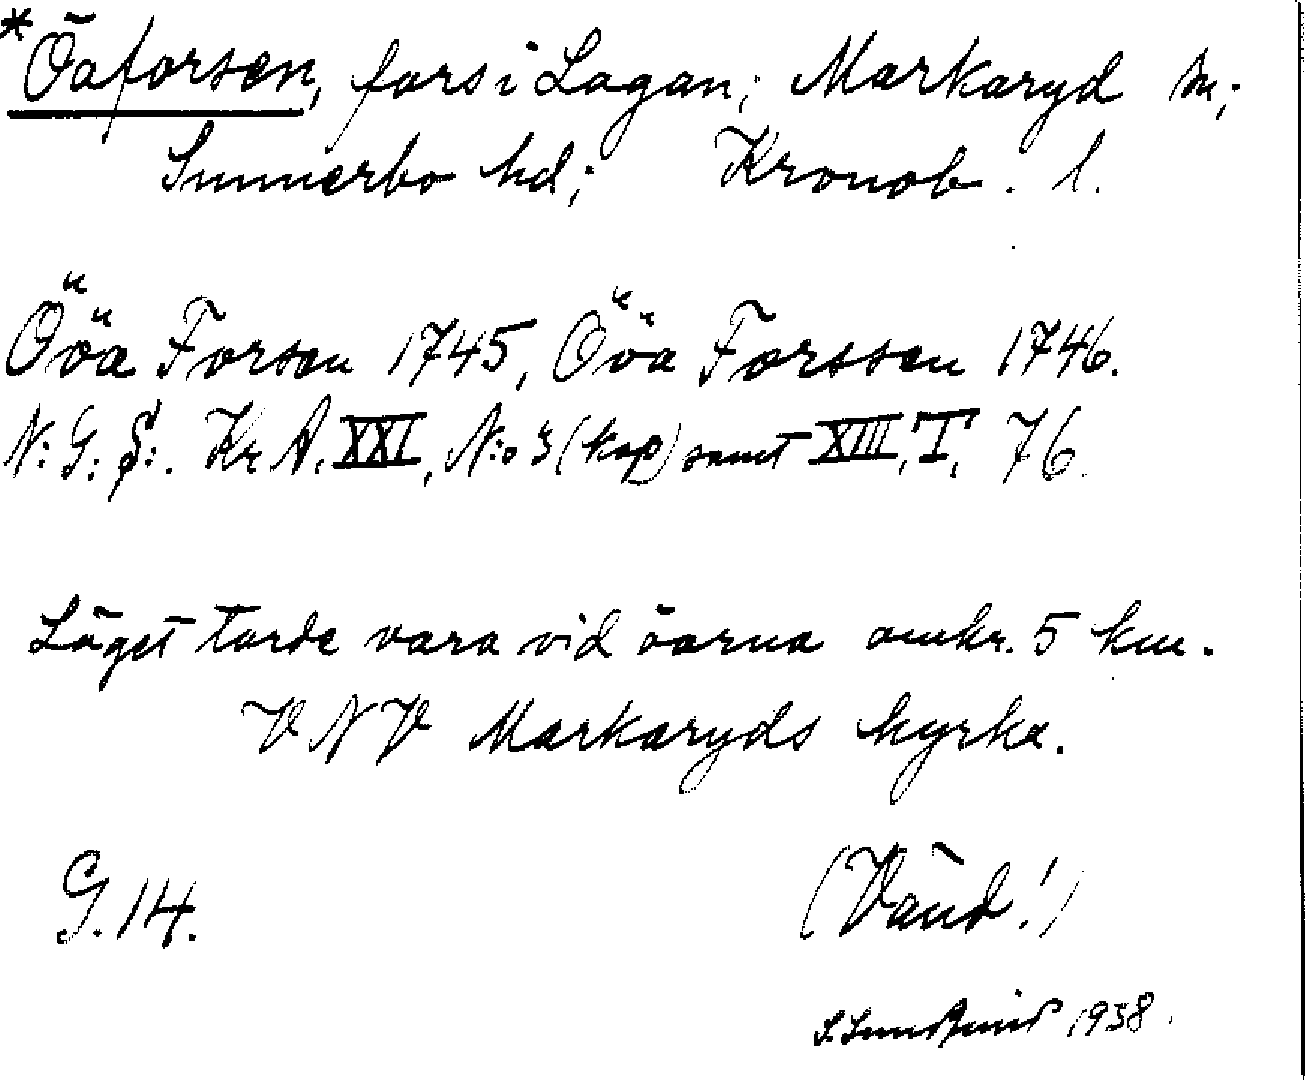 *Öaforsen, fors i Lagan; Markaryd sn;
Sunnerbo hd; Kronob. l.
Ööa Forsen 1745, Ööa Forssen 1746.
N: G: S:. Kr A. XXI, N:o 3 (kop) samt XIII, I, 76.
Läget torde vara vid öarna omkr. 5 km.
VNV Markaryds kyrka.
G. 14.
(Vänd!)
1938.